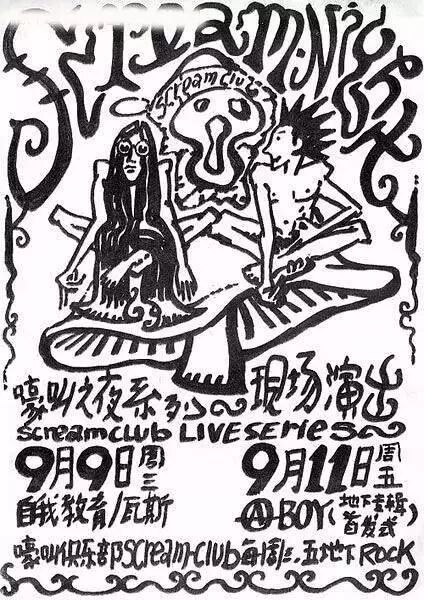 Scream·Night
scream club
嚎叫之夜系列～现场演出
screamclub LIVE series～
9月9日周三
9月11日周五
自我教育/瓦斯
Ⓐ-BOY(地下专辑首发式)
嚎叫俱乐部scream-club每周三.五地下ROCK